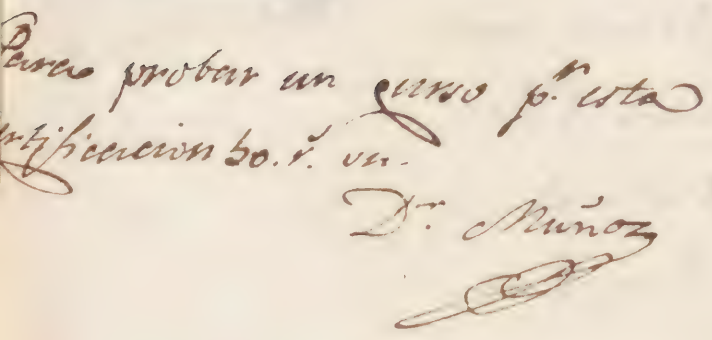 Para probar un curso p.r esta
ertificacion 50. r.s vn.
D.r Muñoz